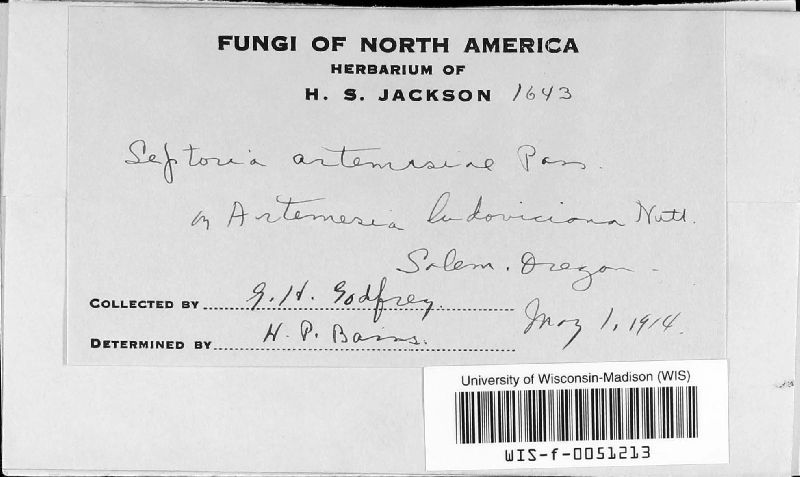 FUNGI OF NORTH AMERICA
HERBARIUM OF
H. S. JACKSON 1643
Septoria artemisiae Pass.
on Artemesia ludoviciana Nutt.
Salem. Oregon.
COLLECTED BY G. H. Godfrey. May 1, 1914.
DETERMINED BY H. P.
University of Wisconsin-Madison (WIS)
WIS-f-0051213